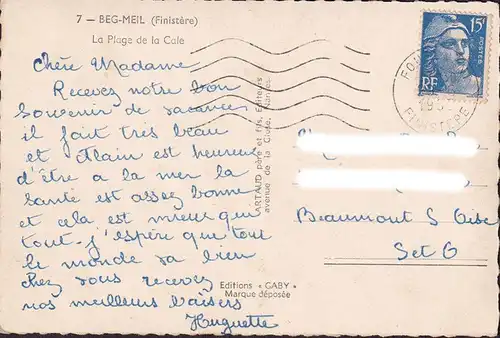 7 — BEG-MEIL (Finistère)
La Plage de la Cale
Chère Madame
Recevez notre bon
souvenir de vacances
il fait très beau
et Alain est heureux
d'être a la mer la
santé est assez bonne
et cela est mieux que
tout - j'espère que tout
le monde va bien
chez vous recevez
nos meilleurs baisers
Huguette
ARTAUD père et fils, Editeurs
avenue de la Close, Nantes
Editions « GABY »
Marque déposée
15F
POSTES
RF
FINISTERE
Beaumont S Oise
Set O